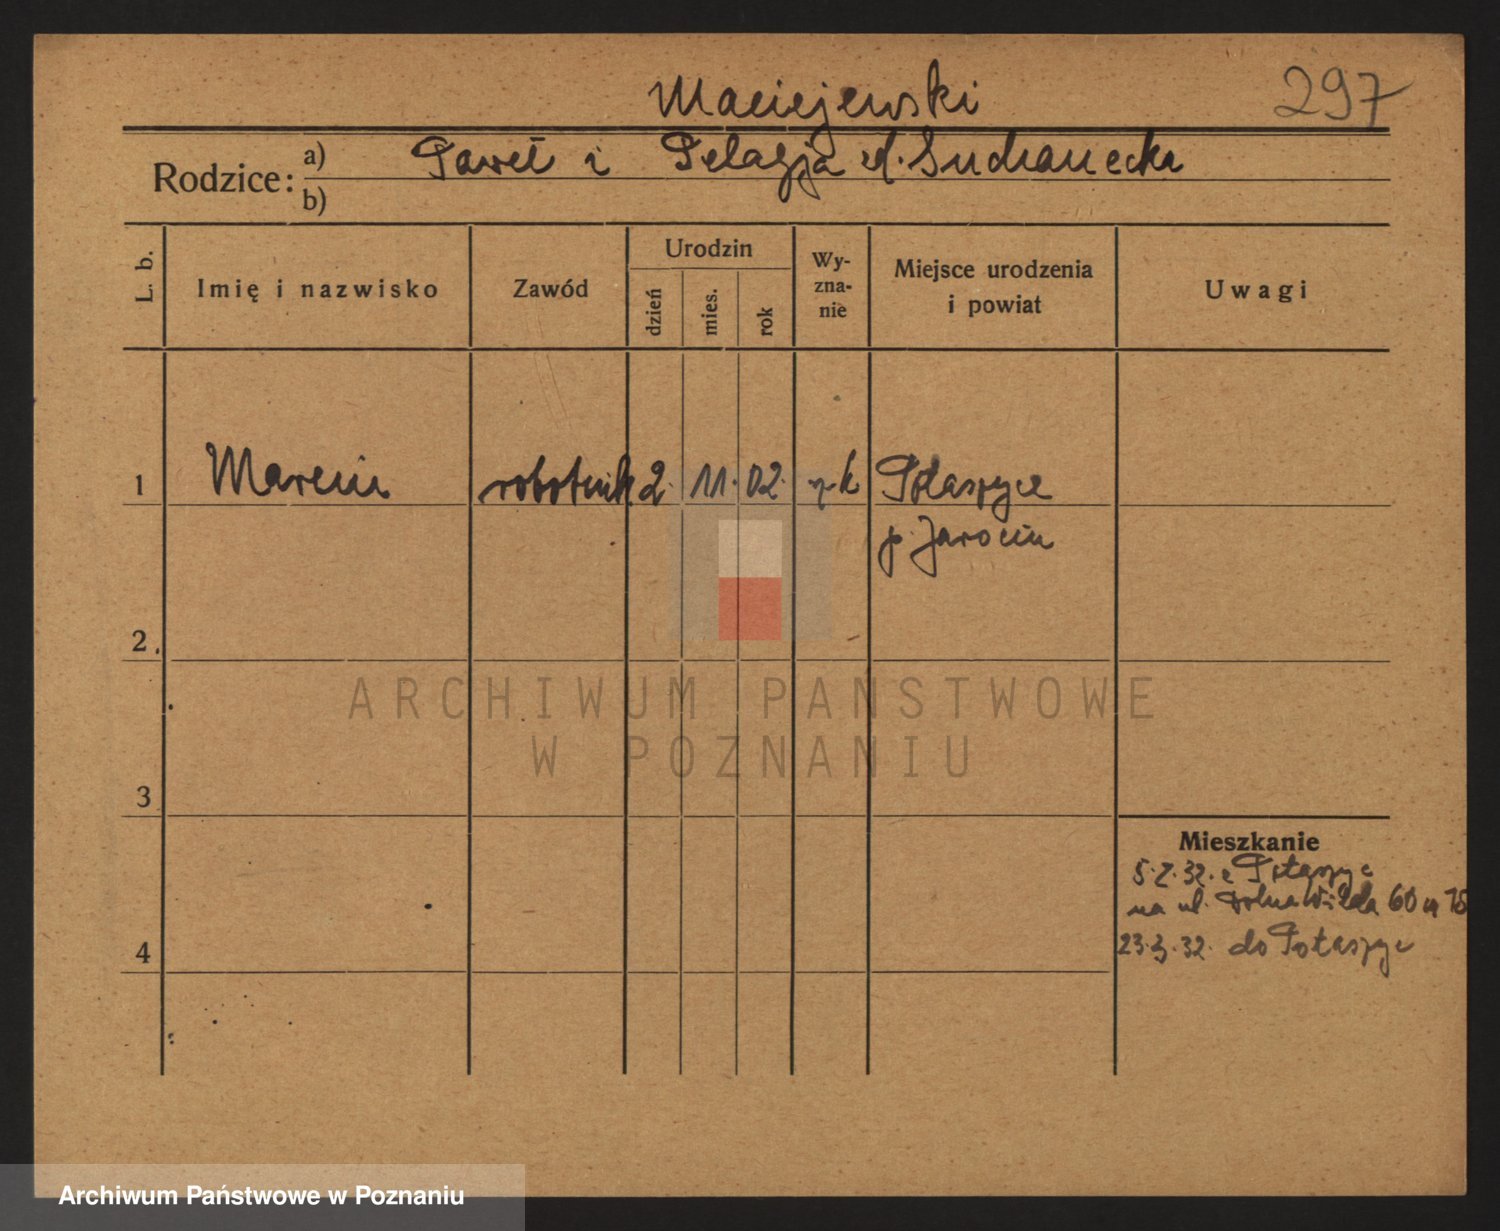 Maciejewski
297
Rodzice:
a) Paweł i Pelagja d. Suchanecka
b)
L. b.
Imię i nazwisko
Zawód
Urodzin
dzień
mies.
rok
Wy-
zna-
nie
Miejsce urodzenia
i powiat
Uwagi
1 Marcin robotnik 2. 11. 02. rk Potarzyce
p. Jarocin
2.
3
4
Mieszkanie
5. 2. 32. z Potarzyc
na ul. Dolna Wilda 60 m 15
23. 3. 32. do Potarzyc
ARCHIWUM PAŃSTWOWE
W POZNANIU
Archiwum Państwowe w Poznaniu